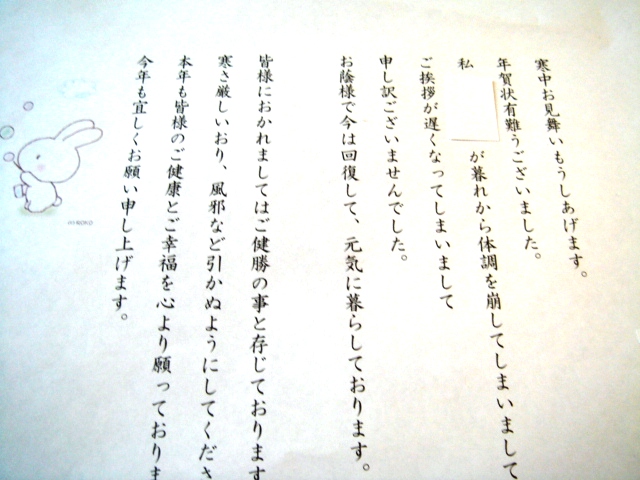 寒中お見舞いもうしあげます。
年賀状有難うございました。
私 が暮れから体調を崩してしまいまして
ご挨拶が遅くなってしまいまして
申し訳ございませんでした。
お陰様で今は回復して、元気に暮らしております。
皆様におかれましてはご健勝の事と存じております
寒さ厳しいおり、風邪など引かぬようにしてくださ
本年も皆様のご健康とご幸福を心より願っておりま
今年も宜しくお願い申し上げます。